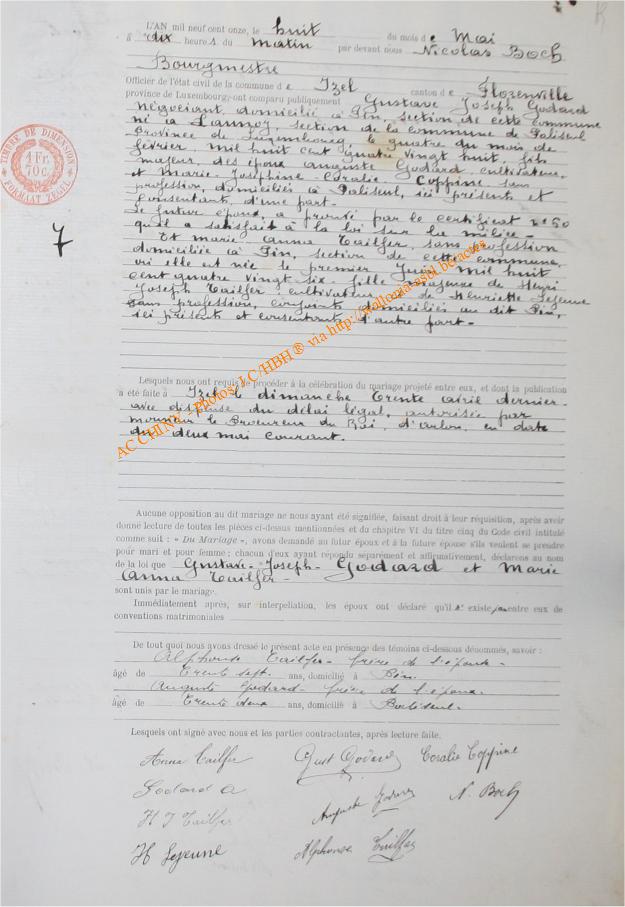 L'AN mil neuf cent onze, le huit du mois de Mai
à dix heures du matin par devant nous Nicolas Boch
Bourgmestre
Officier de l'état civil de la commune de Izel canton de Florenville
province de Luxembourg, ont comparu publiquement Gustave Joseph Godard
Négociant domicilié à Pin, section de cette commune
né à Launoy, section de la commune de Paliseul
Province de Luxembourg, le quatre du mois de
février, mil huit cent quatre vingt huit, fils
majeur, des époux Auguste Godard, cultivateur,
et Marie-Joséphine-Coralie-Coppine sans
profession, domiciliés à Paliseul, ici présents et
consentant, d'une part-
Le futur époux, a prouvé par le certificat n° 50
qu'il a satisfait à la loi sur la milice-
Et Marie Anna Tailfer, sans profession
domiciliée à Pin, section de cette commune,
où elle est née le premier Juin, mil huit
cent quatre vingt six- fille majeure de Henri
Joseph Tailfer, cultivateur, et de Henriette Lejeune
sans profession, conjoints domiciliés au dit Pin,
ici présents et consentant d'autre part-
Lesquels nous ont requis de procéder à la célébration du mariage projeté entre eux, et dont la publication
a été faite à Izel le dimanche trente avril dernier-
avec dispense du délai légal, autorisée par
monsieur le Procureur du Roi, d'Arlon, en date
du deux mai courant.
Aucune opposition au dit mariage ne nous ayant été signifiée, faisant droit à leur réquisition, après avoir
donné lecture de toutes les pièces ci-dessus mentionnées et du chapitre VI du titre cinq du Code civil intitulé
comme suit : « Du Mariage », avons demandé au futur époux et à la future épouse s'ils veulent se prendre
pour mari et pour femme ; chacun d'eux ayant répondu séparément et affirmativement, déclarons au nom
de la loi que Gustave-Joseph-Godard et Marie
Anna Tailfer-
sont unis par le mariage.
Immédiatement après, sur interpellation, les époux ont déclaré qu'il n'existe pas entre eux de
conventions matrimoniales
De tout quoi nous avons dressé le présent acte en présence des témoins ci-dessous dénommés, savoir :
Alphonse Tailfer- frère de l'épouse-
âgé de trente sept- ans, domicilié à Pin.
Auguste Godard- frère de l'époux-
âgé de trente deux ans, domicilié à
Lesquels ont signé avec nous et les parties contractantes, après lecture faite.
Anna Tailfer Gust Godard Coralie Coppine
Godard A
Auguste Godard N. Boch
H J Tailfer
H Lejeune Alphonse Tailfer
7
TIMBRE DE DIMENSION
1 Fr.
70 c.
FORMAAT ZEGEL
AC CHINY - Photos J.C/HBH® via http://wallonia-asbl.be/actes